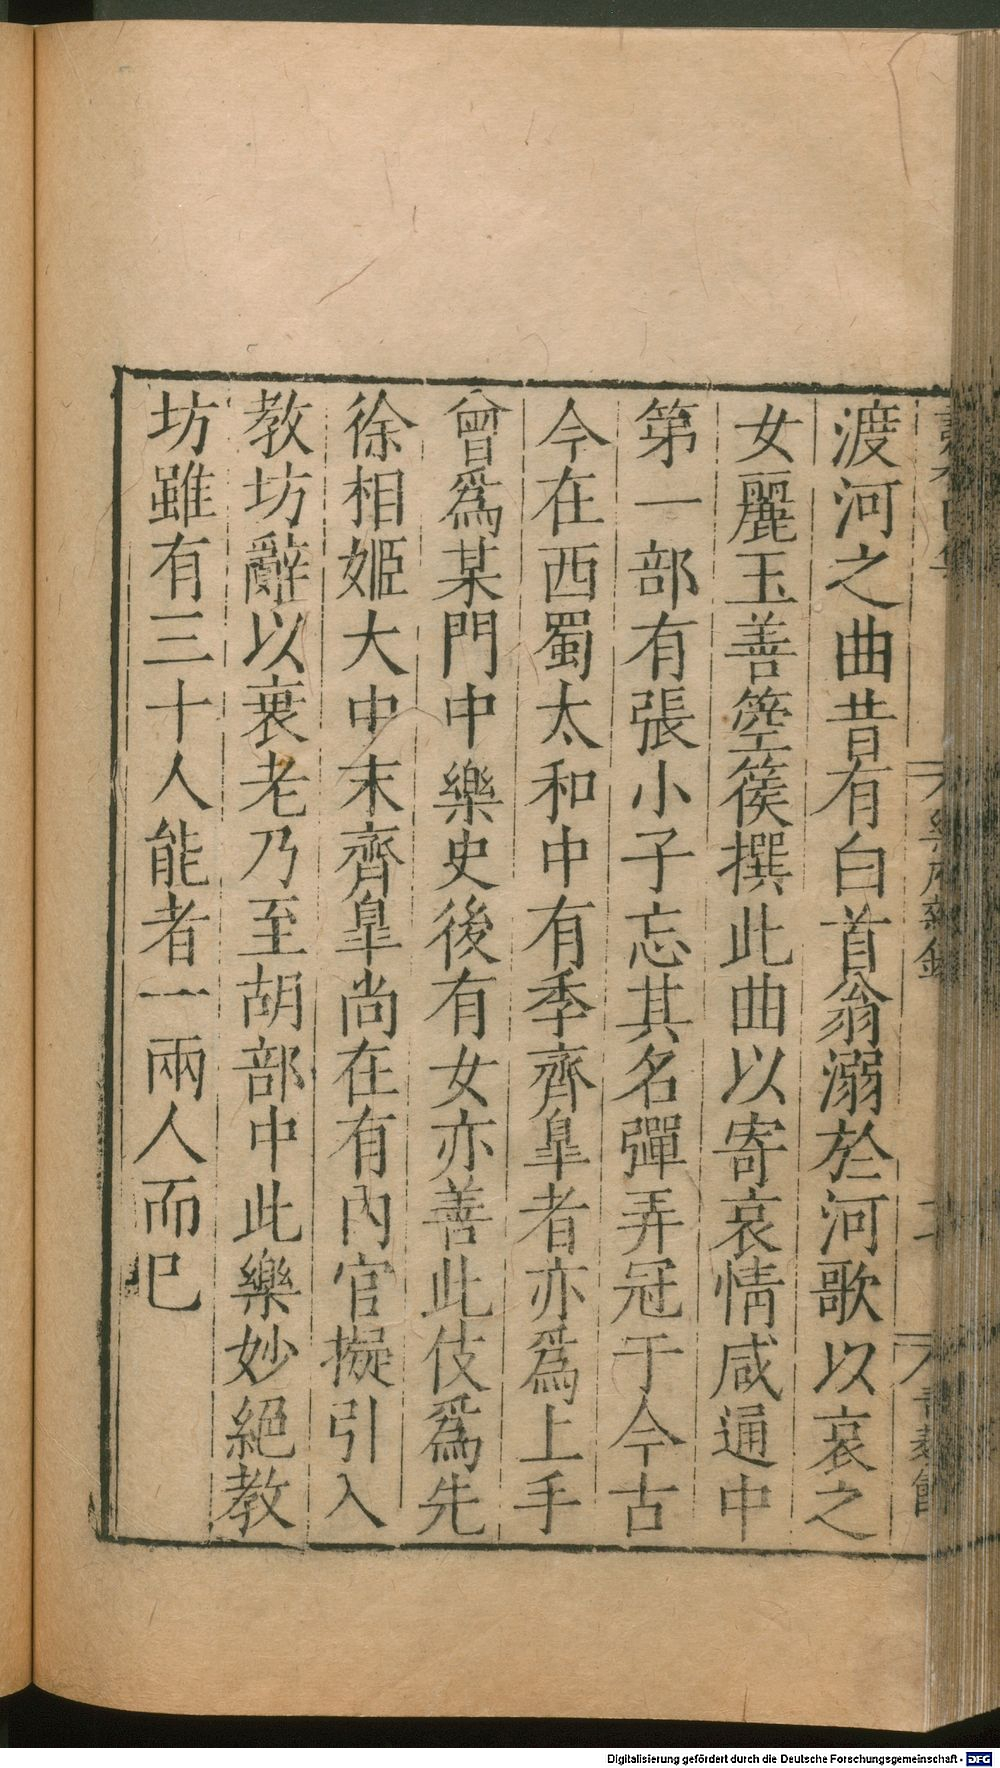 渡河之曲昔有白首翁溺於河歌以哀之
女麗玉善箜篌撰此曲以寄哀情咸通中
第一部有張小子忘其名彈弄冠于今古
今在西蜀太和中有季齊皐者亦爲上手
曾爲某門中樂史後有女亦善此伎爲先
徐相姬大中末齊皐尚在有內官擬引入
教坊辭以衰老乃至胡部中此樂妙絕教
坊雖有三十人能者一兩人而巳
Digitalisierung gefördert durch die Deutsche Forschungsgemeinschaft - DFG